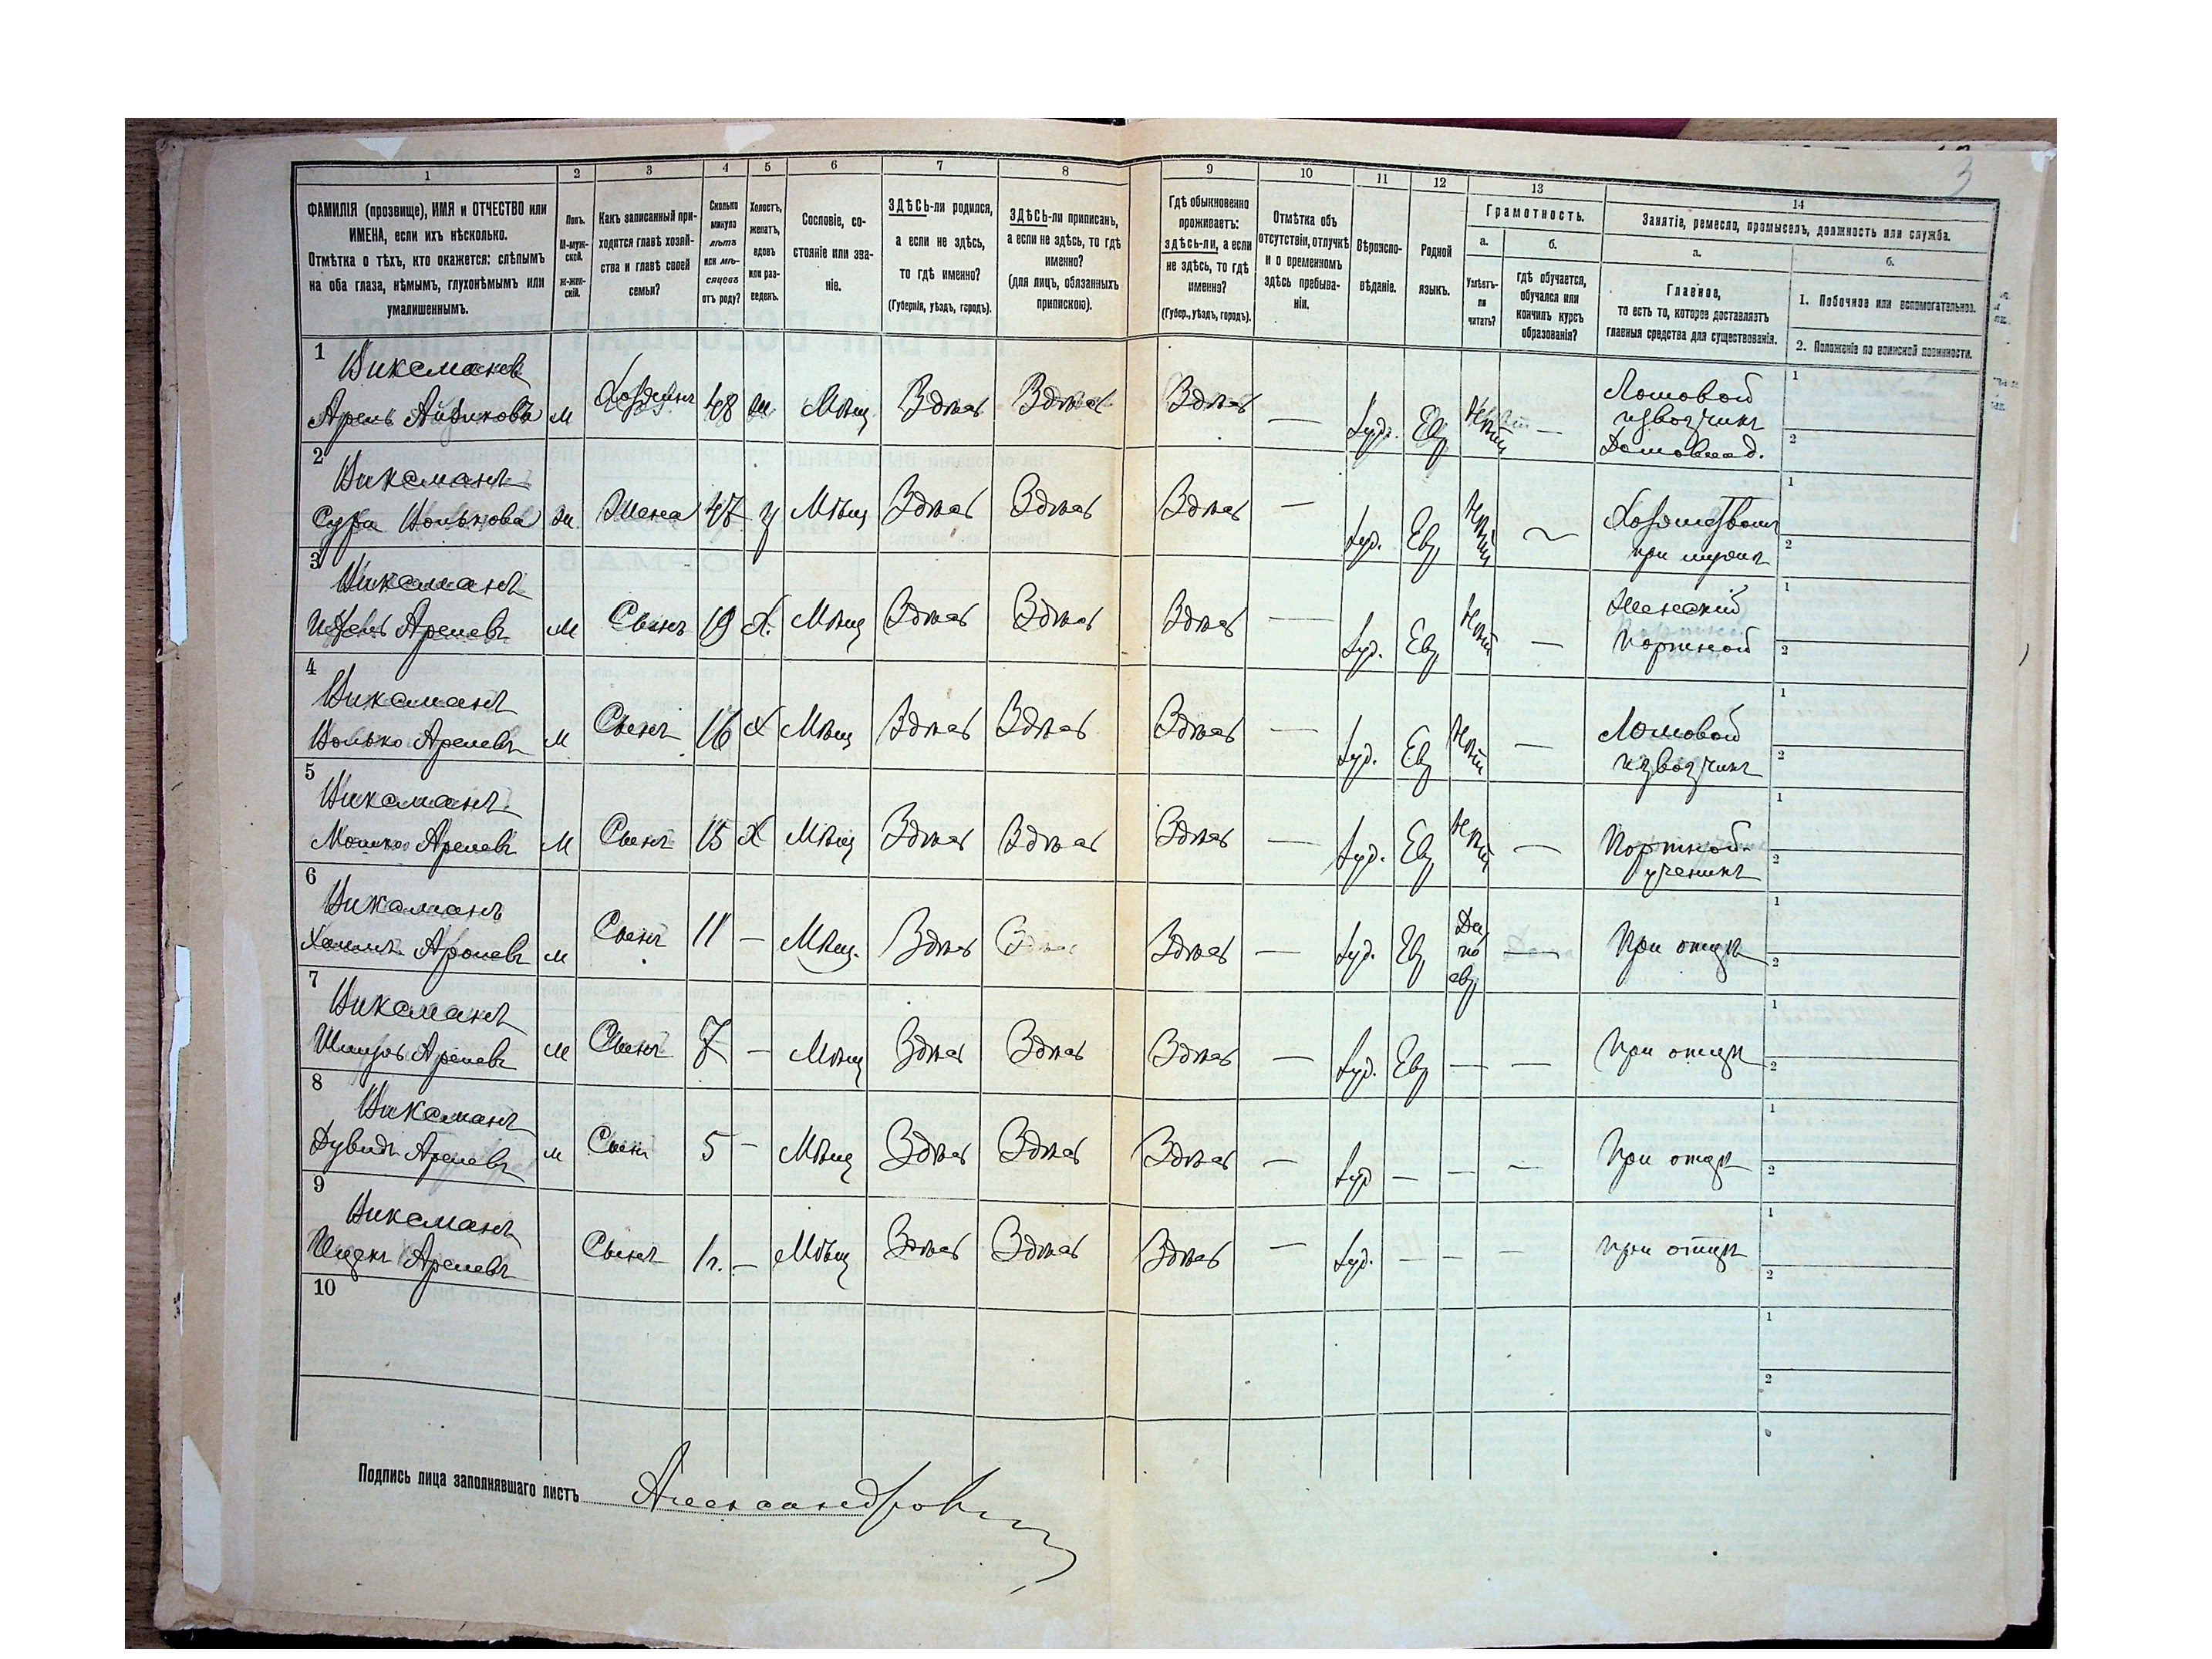 3
1 2 3 4 5 6 7 8 9 10 11 12 13 14
ФАМИЛІЯ (прозвище), ИМЯ и ОТЧЕСТВО или
ИМЕНА, если ихъ нѣсколько.
Отмѣтка о тѣхъ, кто окажется: слѣпымъ
на оба глаза, нѣмымъ, глухонѣмымъ или
умалишеннымъ.
Полъ.
М-муж-
ской.
Ж-жен-
скій.
Какъ записанный при-
ходится главѣ хозяй-
ства и главѣ своей
семьи?
Сколько
минуло
лѣтъ
или мѣ-
сяцовъ
отъ роду?
Холостъ,
женатъ,
вдовъ
или раз-
веденъ.
Сословіе, со-
стояніе или зва-
ніе.
ЗДѢСЬ-ли родился,
а если не здѣсь,
то гдѣ именно?
(Губернія, уѣздъ, городъ).
ЗДѢСЬ-ли приписанъ,
а если не здѣсь, то гдѣ
именно?
(для лицъ, обязанныхъ
припискою).
Гдѣ обыкновенно
проживаетъ:
здѣсь-ли, а если
не здѣсь, то гдѣ
именно?
(Губер., уѣздъ, городъ).
Отмѣтка объ
отсутствіи, отлучкѣ
и о временномъ
здѣсь пребыва-
ніи.
Вѣроиспо-
вѣданіе.
Родной
языкъ.
Грамотность.
а.
Умѣетъ-
ли
читать?
б.
гдѣ обучается,
обучался или
кончилъ курсъ
образованія?
Занятіе, ремесло, промыселъ, должность или служба.
а.
Главное,
то есть то, которое доставляетъ
главныя средства для существованія.
б.
1. Побочное или вспомогательное.
2. Положеніе по воинской повинности.
1 Виксманъ
Арель Айзиковъ М Хозяинъ 48 ж Мѣщ. Здѣсь Здѣсь Здѣсь — Іуд. Евр Нѣтъ — Ломовой
извозчикъ
Домовлад.
1
2
2 Виксманъ
Сура Волькова Ж. Жена 47 Мѣщ Здѣсь Здѣсь Здѣсь — Іуд. Евр Нѣтъ —
при мужѣ
1
2
3 Виксманъ
Арелевъ М Сынъ 19 Х. Мѣщ Здѣсь Здѣсь Здѣсь — Іуд. Евр Нѣтъ — Женскій
портной
1
2
4 Виксманъ
Волько Арелевъ М Сынъ 16 Х Мѣщ Здѣсь Здѣсь Здѣсь — Іуд. Евр Нѣтъ — Ломовой
извозчикъ
1
2
5 Виксманъ
Мошко Арелевъ М Сынъ 15 Х Мѣщ Здѣсь Здѣсь Здѣсь — Іуд. Евр Нѣтъ — Портной-
ученикъ
1
2
6 Виксманъ
Арелевъ М Сынъ 11 — Мѣщ. Здѣсь Здѣсь Здѣсь — Іуд. Евр Да, по евр — При отцѣ
1
2
7 Виксманъ
Арелевъ М Сынъ 7 — Мѣщ Здѣсь Здѣсь Здѣсь — Іуд. Евр — — При отцѣ
1
2
8 Виксманъ
Дувидъ Арелевъ М Сынъ 5 — Мѣщ Здѣсь Здѣсь Здѣсь — Іуд — — — При отцѣ
1
2
9 Виксманъ
Арелевъ Сынъ 1г. — Мѣщ Здѣсь Здѣсь Здѣсь — Іуд. — — — При отцѣ
1
2
10
1
2
Подпись лица заполнявшаго листъ